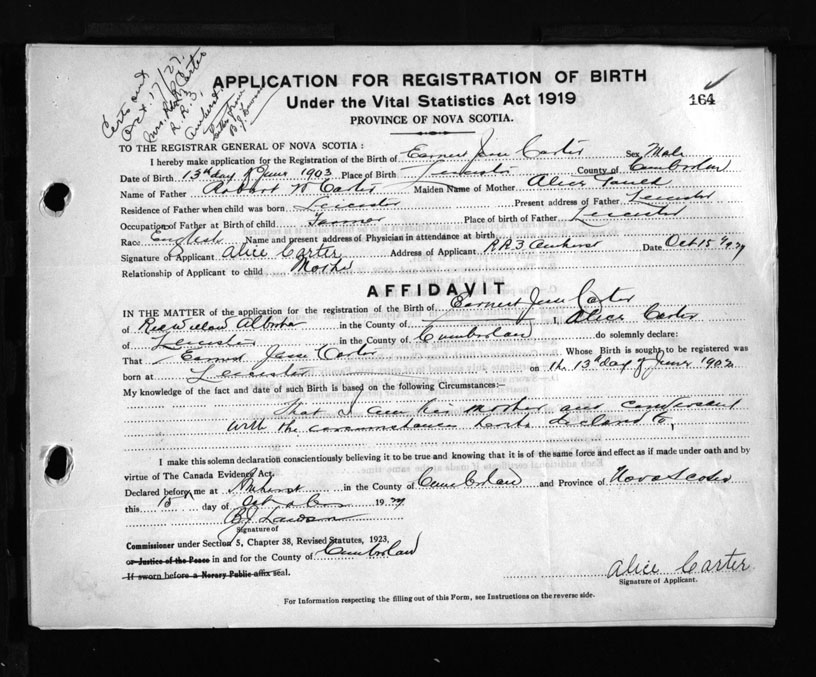 Certs sent
Oct 17/27.
Mrs. Robt Carter
R.R.3,
Amherst
APPLICATION FOR REGISTRATION OF BIRTH
Under the Vital Statistics Act 1919
164
PROVINCE OF NOVA SCOTIA.
TO THE REGISTRAR GENERAL OF NOVA SCOTIA:
I hereby make application for the Registration of the Birth of Earnest Jesse Carter Sex Male
Date of Birth 13th day of June 1903 Place of Birth Leicester County of Cumberland
Name of Father Robert W Carter Maiden Name of Mother Alice
Residence of Father when child was born Leicester Present address of Father Leicester
Occupation of Father at Birth of child Farmer Place of birth of Father Leicester
Race English Name and present address of Physician in attendance at birth
Signature of Applicant Alice Carter Address of Applicant R.R.3 Amherst Date Oct 15
Relationship of Applicant to child Mother
AFFIDAVIT
IN THE MATTER of the application for the registration of the Birth of Earnest Jesse Carter
of Red Willow Alberta in the County of I, Alice Carter
of Leicester in the County of Cumberland do solemnly declare:
That Earnest Jesse Carter Whose Birth is sought to be registered was
born at Leicester on the 13th day of June 1903
My knowledge of the fact and date of such Birth is based on the following Circumstances:—
That I am his mother and conversant
with the circumstances herein declared to,
I make this solemn declaration conscientiously believing it to be true and knowing that it is of the same force and effect as if made under oath and by
virtue of The Canada Evidence Act.
Declared before me at Amherst in the County of Cumberland and Province of Nova Scotia
this 15 day of 19 27
Signature of
Commissioner under Section 5, Chapter 38, Revised Statutes, 1923,
or Justice of the Peace in and for the County of Cumberland
If sworn before a Notary Public affix seal.
Alice Carter
Signature of Applicant.
For Information respecting the filling out of this Form, see Instructions on the reverse side.